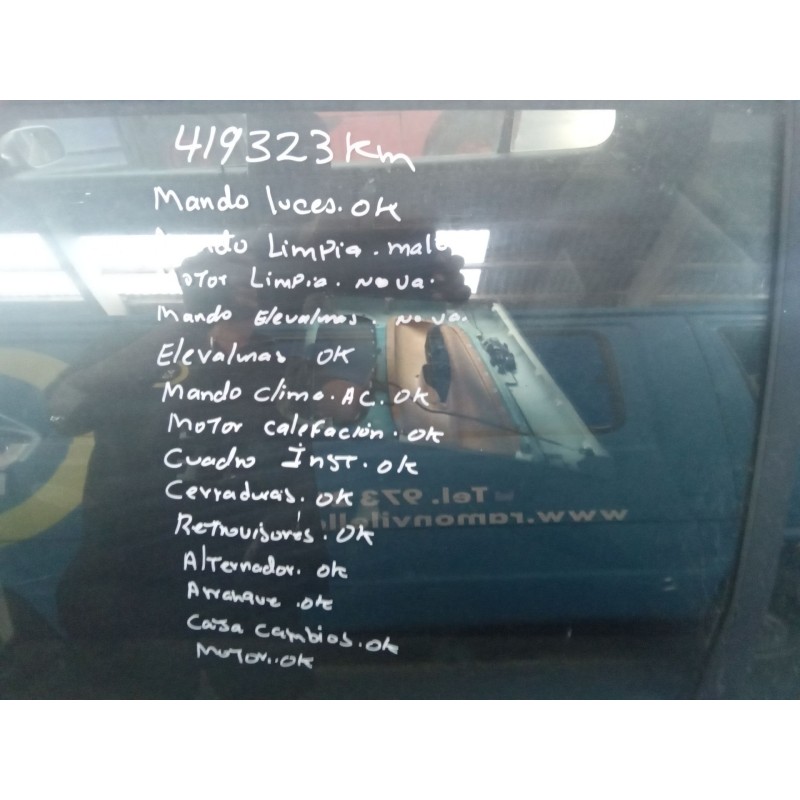 419323 km
Mando luces. OK
Mando Limpia. malo
Motor Limpia. No va.
Mando Elevalunas. No va.
Elevalunas OK
Mando clima. AC. OK
Motor calefación. OK
Cuadro Inst. OK
Cerraduras. OK
Retrovisores. OK
Alternador. OK
Arranque. OK
Caja cambios. OK
Motor.. OK
Tel. 973
www.ramonvilell